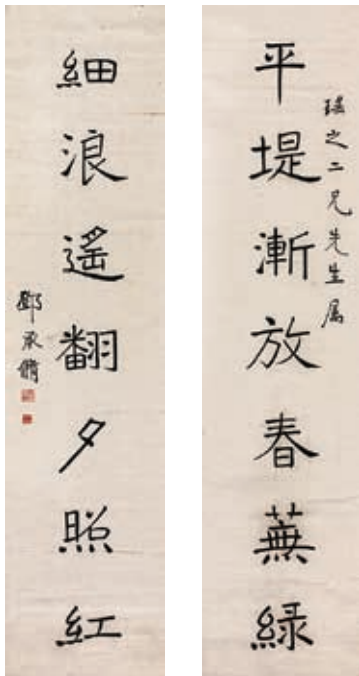 平堤漸放春蕪緑
之二兄先生属
細浪遙翻夕照紅
鄧承脩